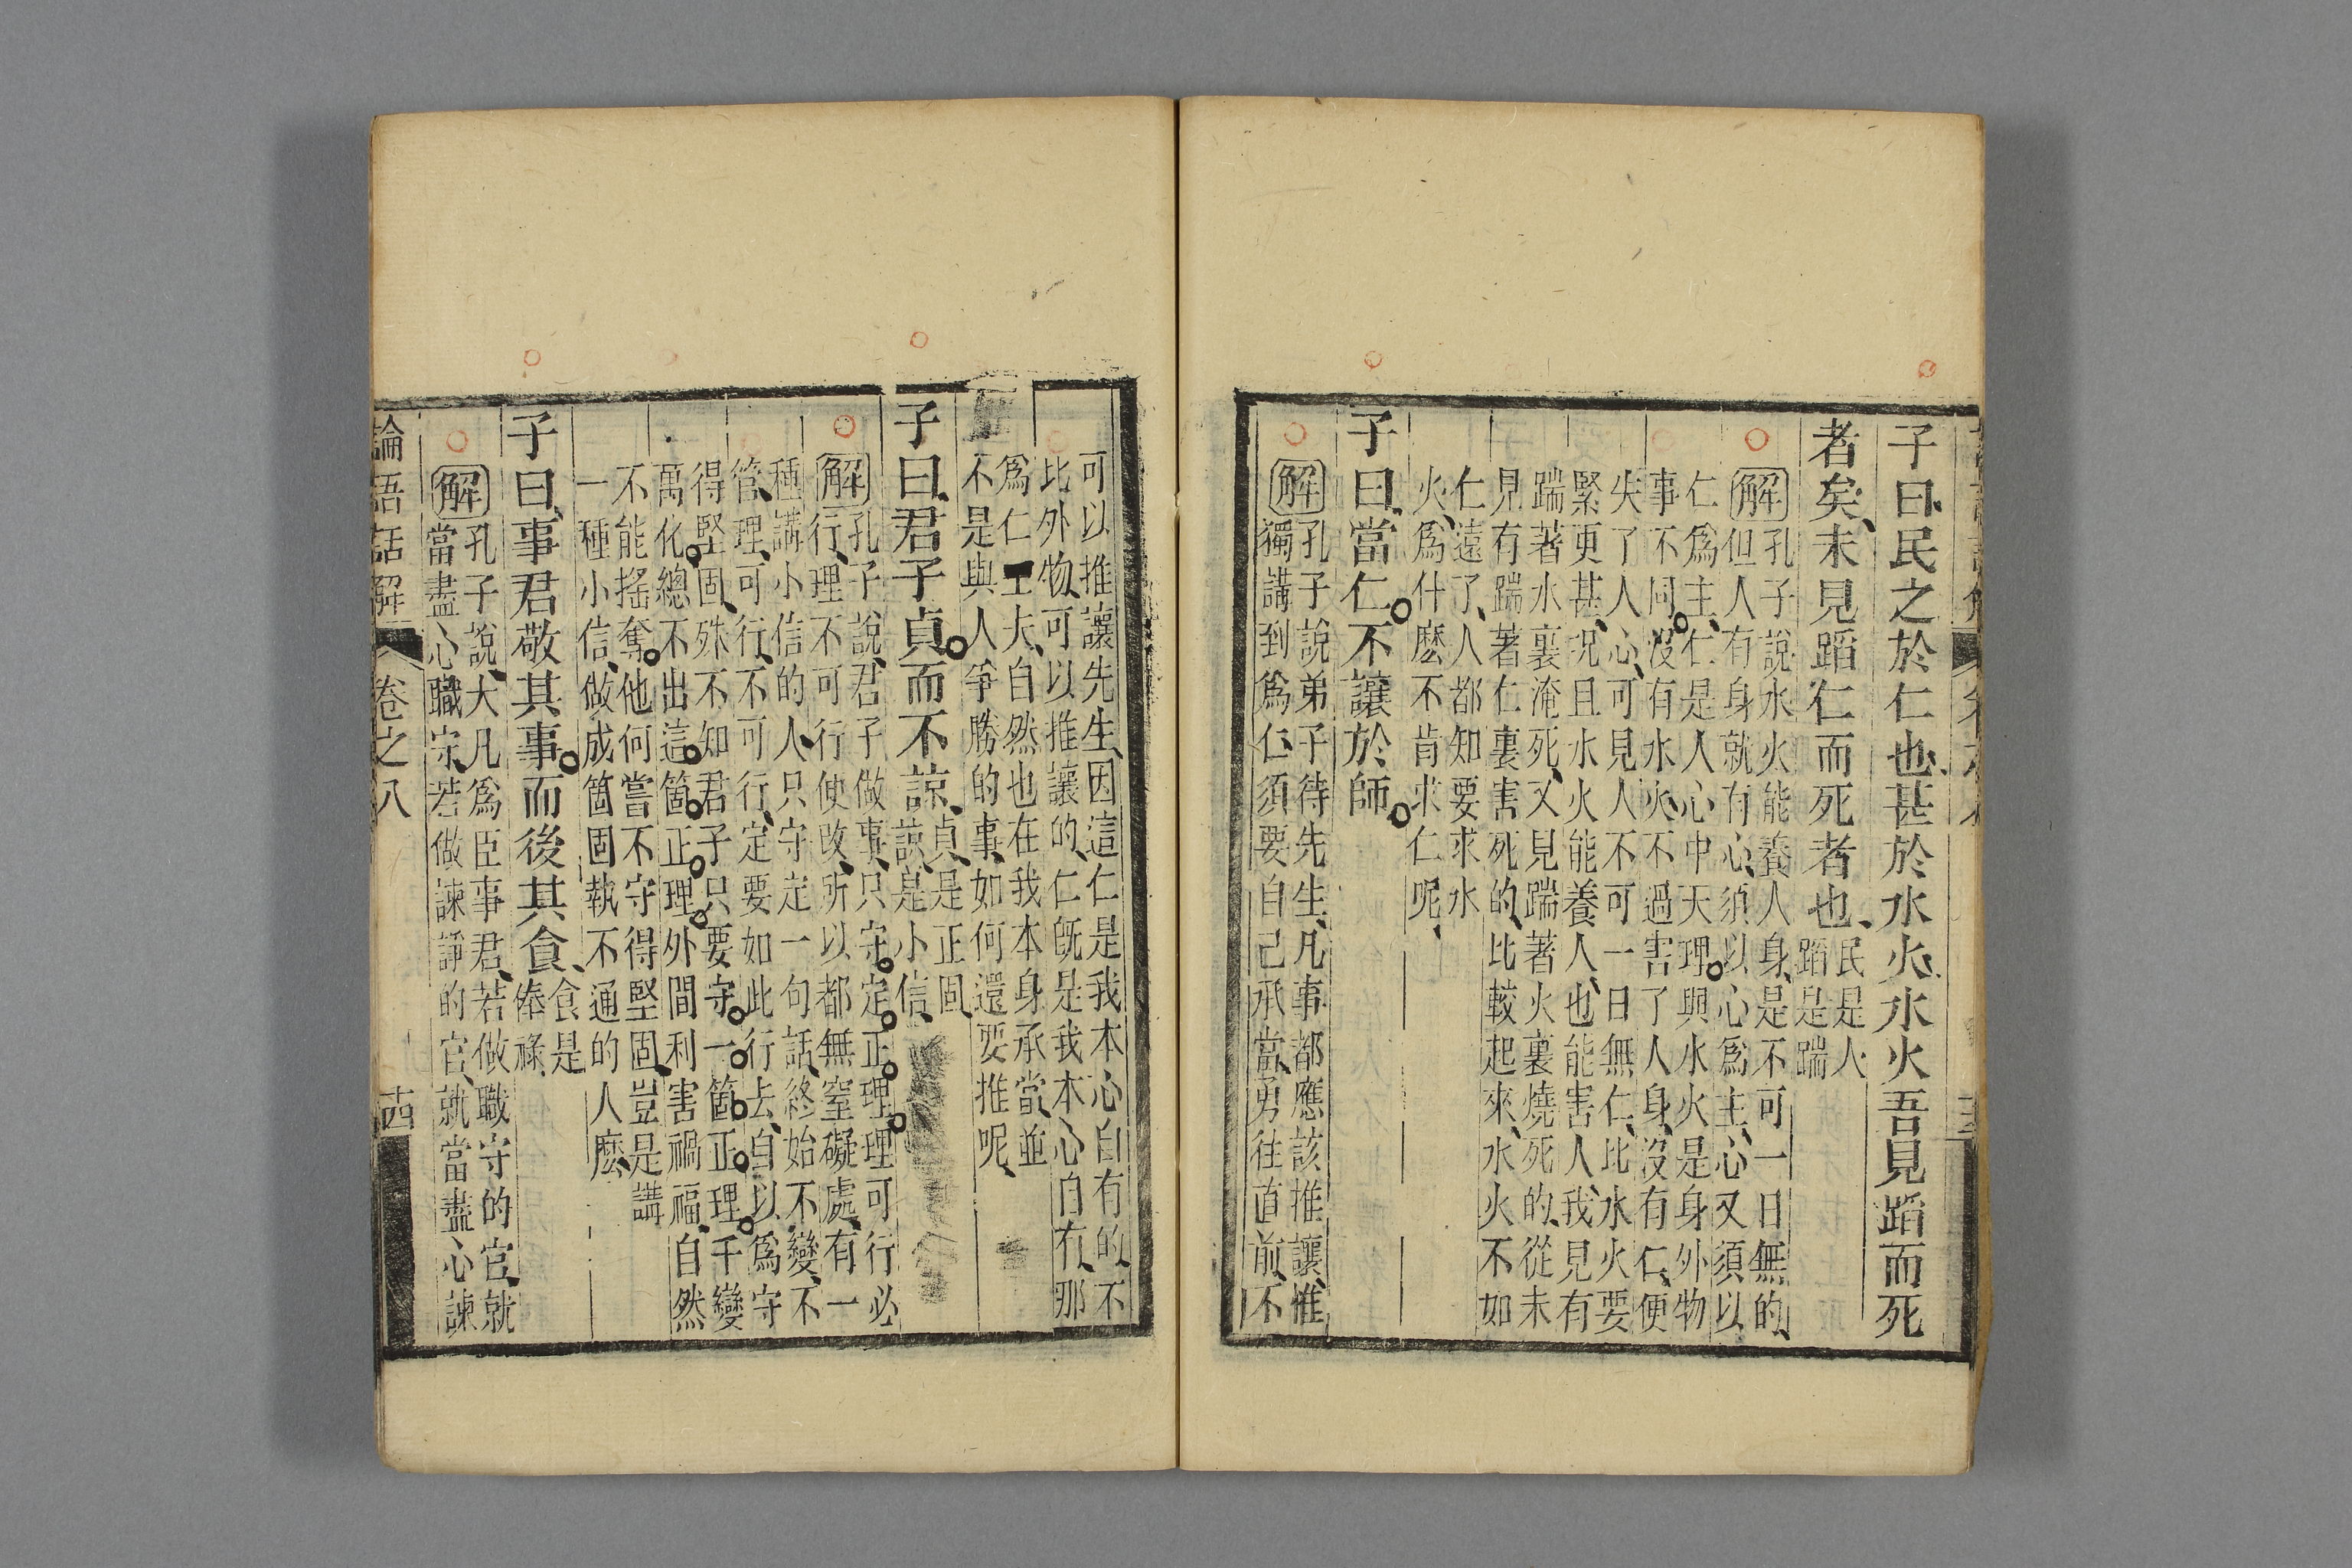 子曰、民之於仁也、甚於水火、水火吾見蹈而死
者矣、未見蹈仁而死者也、民是人
蹈是踹
解孔子說水火能養人身、是不可一日無的、
但人有身就有心、須以心爲主、心又須以
仁爲主、仁是人心中天理。與水火是身外物
事不同。沒有水火、不過害了人身、沒有仁、便
失了人心、可見人不可一日無仁、比水火要
緊更甚、況且水火能養人、也能害人、我見有
踹著水裏淹死、又見踹著火裏燒死的、從未
見有踹著仁裏害死的、比較起來、水火不如
仁遠了、人都知要求水
火、爲什麼不肯求仁呢、
子曰、當仁。不讓於師。
解孔子說弟子待先生、凡事都應該推讓、惟
獨講到爲仁、須要自己承當、勇往直前、不
可以推讓先生、因這仁是我本心自有的、不
比外物、可以推讓的、仁旣是我本心自有、那
爲仁工夫、自然也在我本身承當、並
不是與人爭勝的事、如何還要推呢、
子曰、君子貞。而不諒、貞、是正固、
諒、是小信、
解孔子說、君子做事、只守。定。正。理。理可行必
行、理不可行便改、所以都無窒礙處、有一
種講小信的人、只守定一句話、終始不變、不
管理、可行、不可行、定要如此行去、自以爲守
得堅固、殊不知君子只要守。一。箇。正。理。千變
萬化。總不出這。箇。正。理。外間利害禍福、自然
不能搖奪。他何嘗不守得堅固、豈是講
一種小信、做成箇固執不通的人麼、
子曰、事君敬其事。而後其食、食是
俸祿、
解孔子說、大凡爲臣事君、若做職守的官、就
當盡心職守、若做諫諍的官、就當盡心諫
論語話解
卷之八
十四